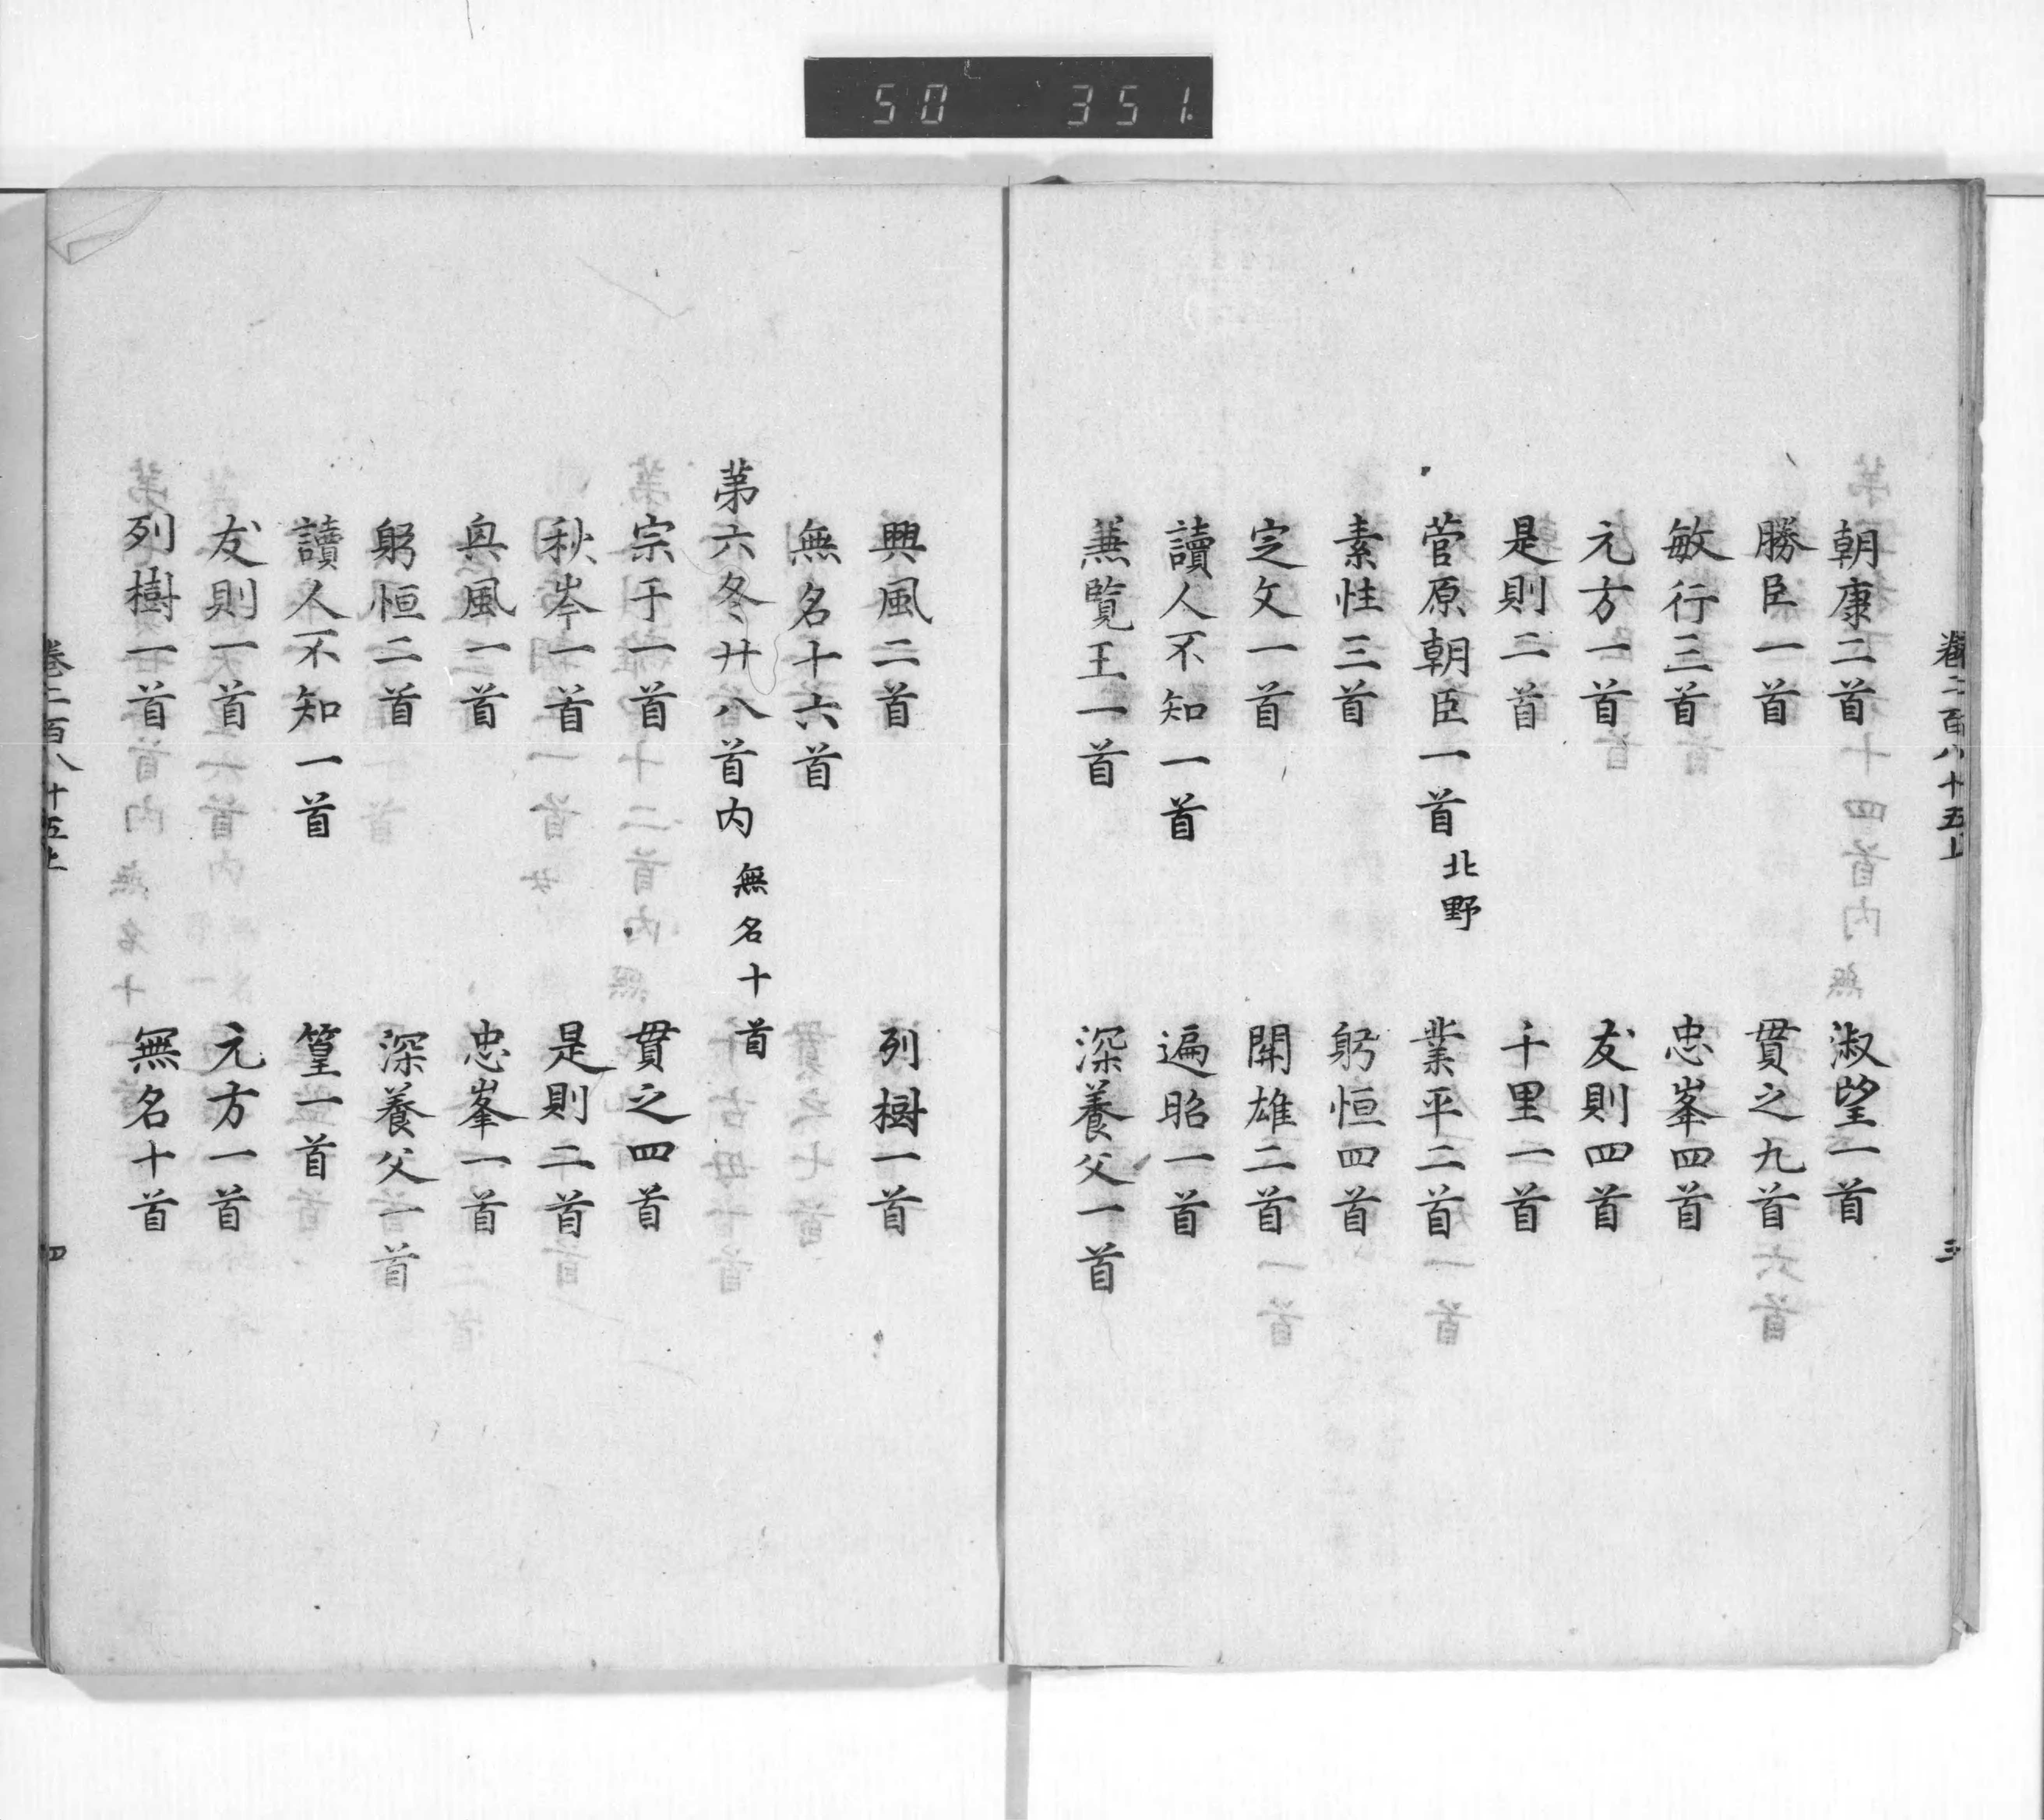 50 351
卷二百八十五上 三
朝康二首 淑望一首
勝臣一首 貫之九首
敏行三首 忠峯四首
元方一首 友則四首
是則二首 千里二首
菅原朝臣一首北野 業平二首
素性三首 躬恒四首
定文一首 関雄二首
讀人不知一首 遍昭一首
兼覧王一首 深養父一首
興風二首 列樹一首
無名十六首
第六冬廾八首内無名十首
宗于一首 貫之四首
秋岑一首 是則二首
奥風一首 忠峯一首
躬恒二首 深養父一首
讀人不知一首 篁一首
友則一首 元方一首
列樹一首 無名十首
卷二百八十五上 四